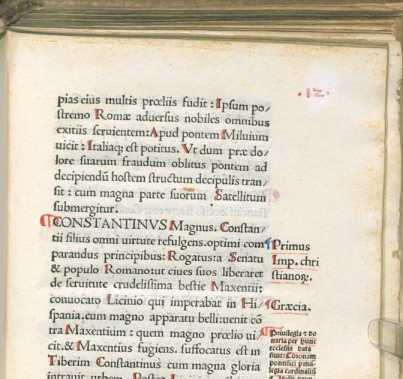 pias eius multis prœliis fudit : Ipsum po/
stremo Romæ aduersus nobiles omnibus
exitiis seruientem: Apud pontem Miluium
uicit : Italiaq; est potitus. Vt dum præ do/
lore suarum fraudum oblitus pontem ad
decipiendū hostem structum decipulis tran/
sit : cum magna parte suorum Satellitum
submergitur.
CONSTANTINVS Magnus. Constan/
tii filius omni uirtute refulgens. optimi com
parandus principibus: Rogatus: a Senatu
& populo Romano: ut ciues suos liberaret
de seruitute crudelissima bestie Maxentii:
conuocato Licinio qui imperabat in Hi/
spania. cum magno apparatu belli: uenit cō
tra Maxentium : quem magno prœlio ui/
cit. & Maxentius fugiens. suffocatus est in
Tiberim Constantinus cum magna gloria
intrauit urbem.
Primus
Imp. chri
stianorꝝ.
Græcia.
Priuilegia ⁊ do
naria per hunc
ecclesie data
fiunt: